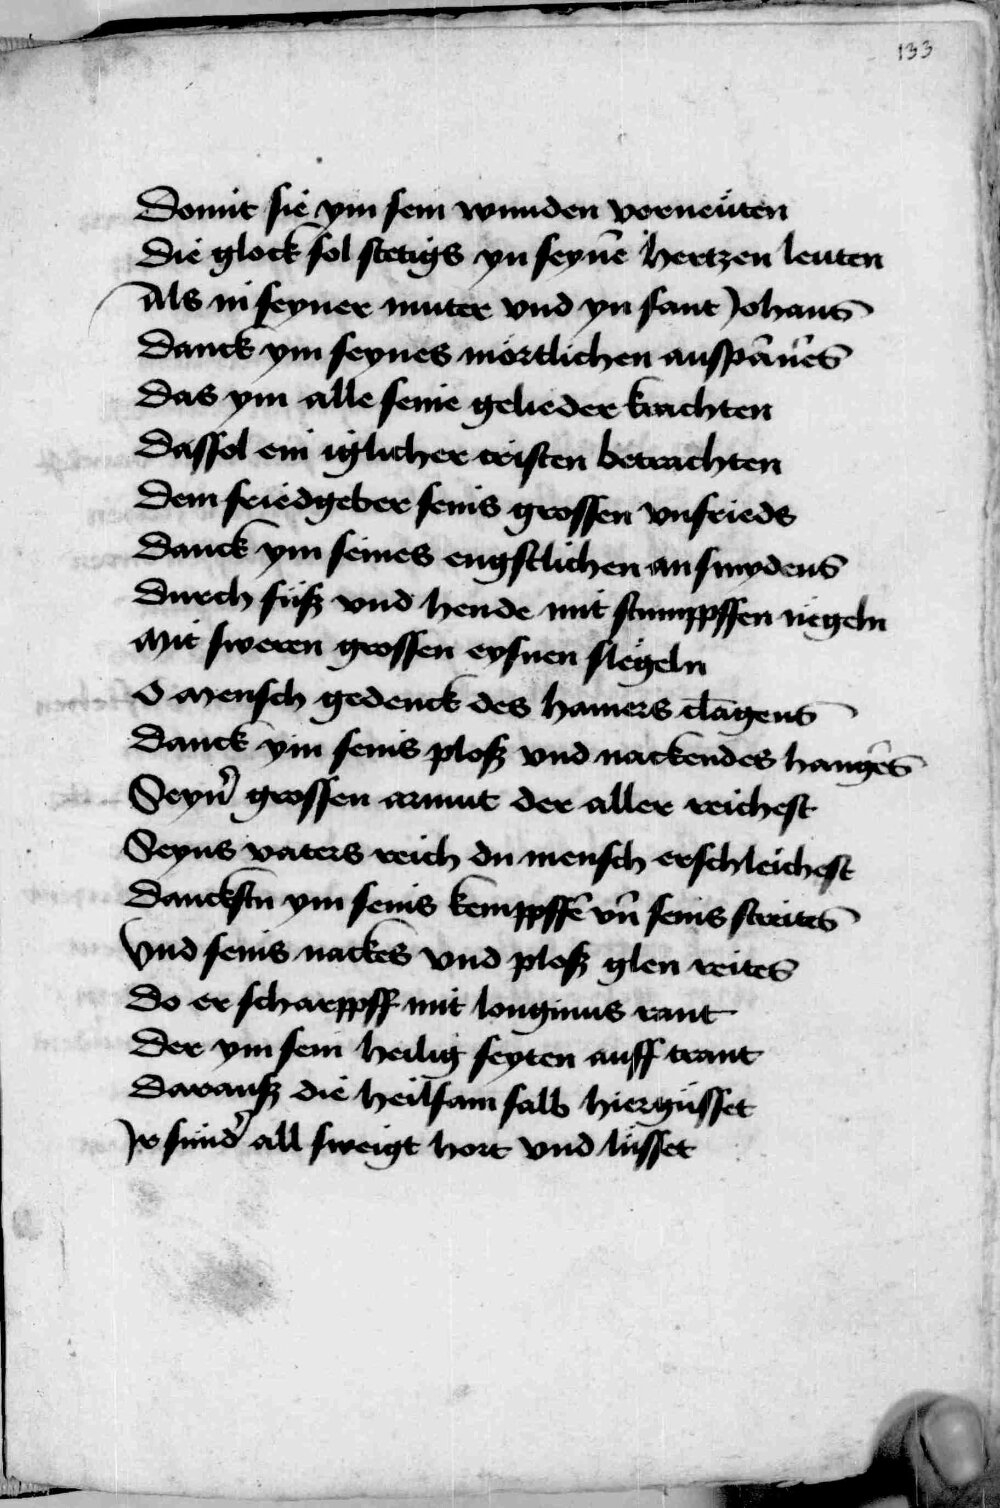 133
Domit sie ym sein wunden vorneuten
Die glock sol stetigs yn seyne hertzen leuten
Als in seyner muter vnd yn sant Johans
Danck ym seynes mörtlichen anspanens
Das ym alle seine gelieder krachten
Das sol ein iglicher cristen betrachten
Dem friedgeber seins grossen vnfrieds
Danck ym seines engstlichen ansmydens
Durch füß vnd hende mit stumppffen negeln
Mit sweren grossen eysnen slegeln
O mensch gedenck des hamers clagens
Danck ym seins ploß vnd nackendes hangens
Seyn grossen armut der aller reichest
Seyns vaters reich du mensch erschleichest
Danckstu ym seins kemppffe vn seins streites
Vnd seins nackes vnd ploß glen reites
Do er scharppff mit longinus rant
Der ym sein heilig seyten auff trant
Darauß die heilsam salb hiergüsset
Ir sünder all sweigt hort vnd lüsset